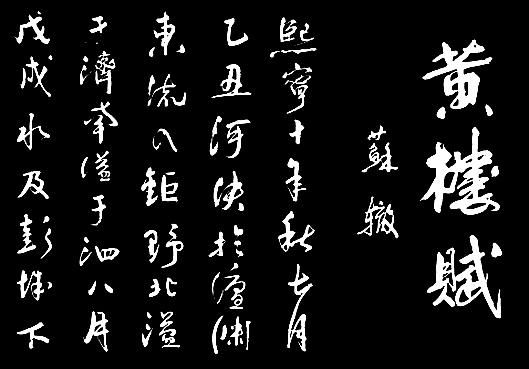 黄樓賦
蘇轍
熙寧十年秋七月
乙丑河決於澶淵
東流入鉅野北溢
于濟南溢于泗八月
戊戌水及彭城下